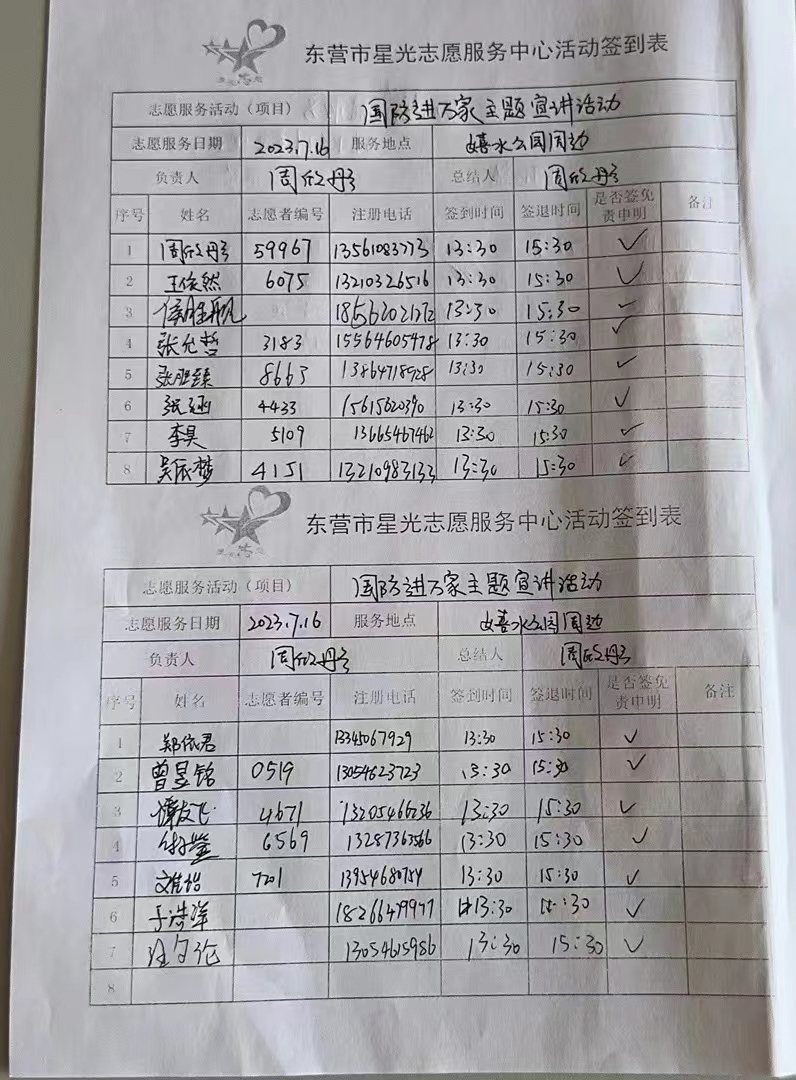 东营市星光志愿服务中心活动签到表
志愿服务活动（项目） 国防进万家主题宣讲活动
志愿服务日期 2023.7.16 服务地点 嬉水公园周边
负责人 周 总结人 周
序号 姓名 志愿者编号 注册电话 签到时间 签退时间 是否签免责申明 备注
1 周 59967 13561083773 13:30 15:30 ✓
2 王依然 6075 13210326516 13:30 15:30 ✓
3 侯胜凯 13:30 15:30 ✓
4 张允哲 3183 15564605478 13:30 15:30 ✓
5 张 8663 13864718928 13:30 15:30 ✓
6 张涵 4433 15615620390 13:30 15:30 ✓
7 李昊 5109 13665467462 13:30 15:30 ✓
8 吴依梦 4151 13210983133 13:30 15:30 ✓
东营市星光志愿服务中心活动签到表
志愿服务活动（项目） 国防进万家主题宣讲活动
志愿服务日期 2023.7.16 服务地点 嬉水公园周边
负责人 周 总结人 周
序号 姓名 志愿者编号 注册电话 签到时间 签退时间 是否签免责申明 备注
1 郑依君 13345067929 13:30 15:30 ✓
2 曾昱铭 0519 13054623723 13:30 15:30 ✓
3 谭友飞 4671 13205466236 13:30 15:30 ✓
4 6569 13287363566 13:30 15:30 ✓
5 文佳怡 7201 13:30 15:30 ✓
6 于浩洋 18266479977 13:30 15:30 ✓
7 13054615986 13:30 15:30 ✓
8